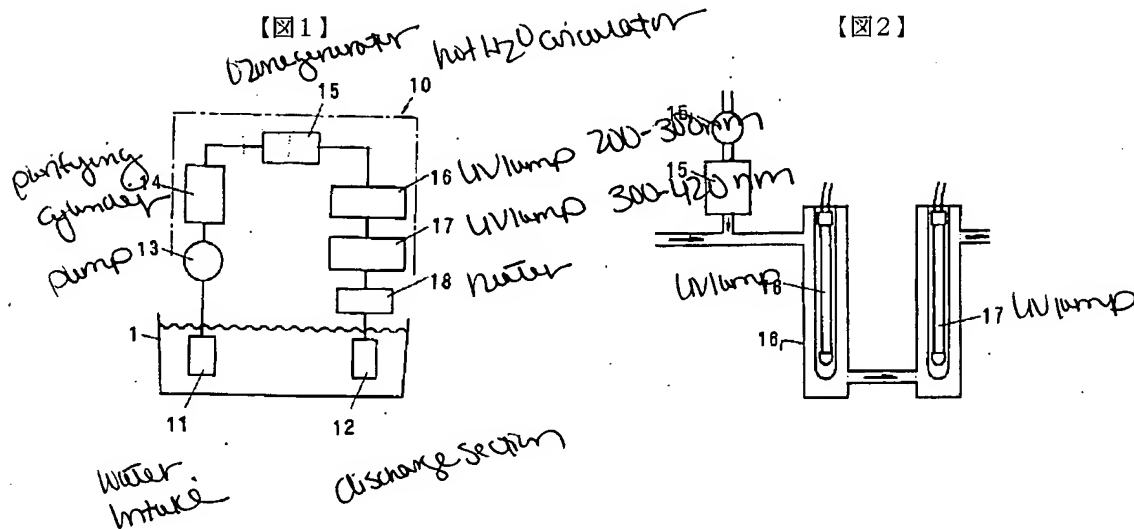 【図1】
【図2】
Ozonegenerator
hot H2O ciriculator
15
10
purifying
cylinder
14
16 UVlamp 200-300nm
17 UVlamp 300-420nm
pump
13
18
1
11
12
Water
Intake
discharge section
15
15
UVlamp
16
16
17 UVlamp